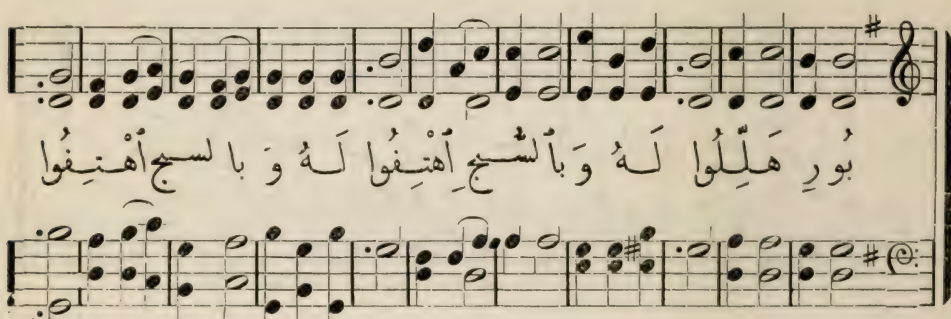 بُورِ هَلِّلُوا لَهُ وَبِٱلنَّسِجِ ٱهْتِفُوا لَهُ وَ با لسبج ٱهْتِفُوا